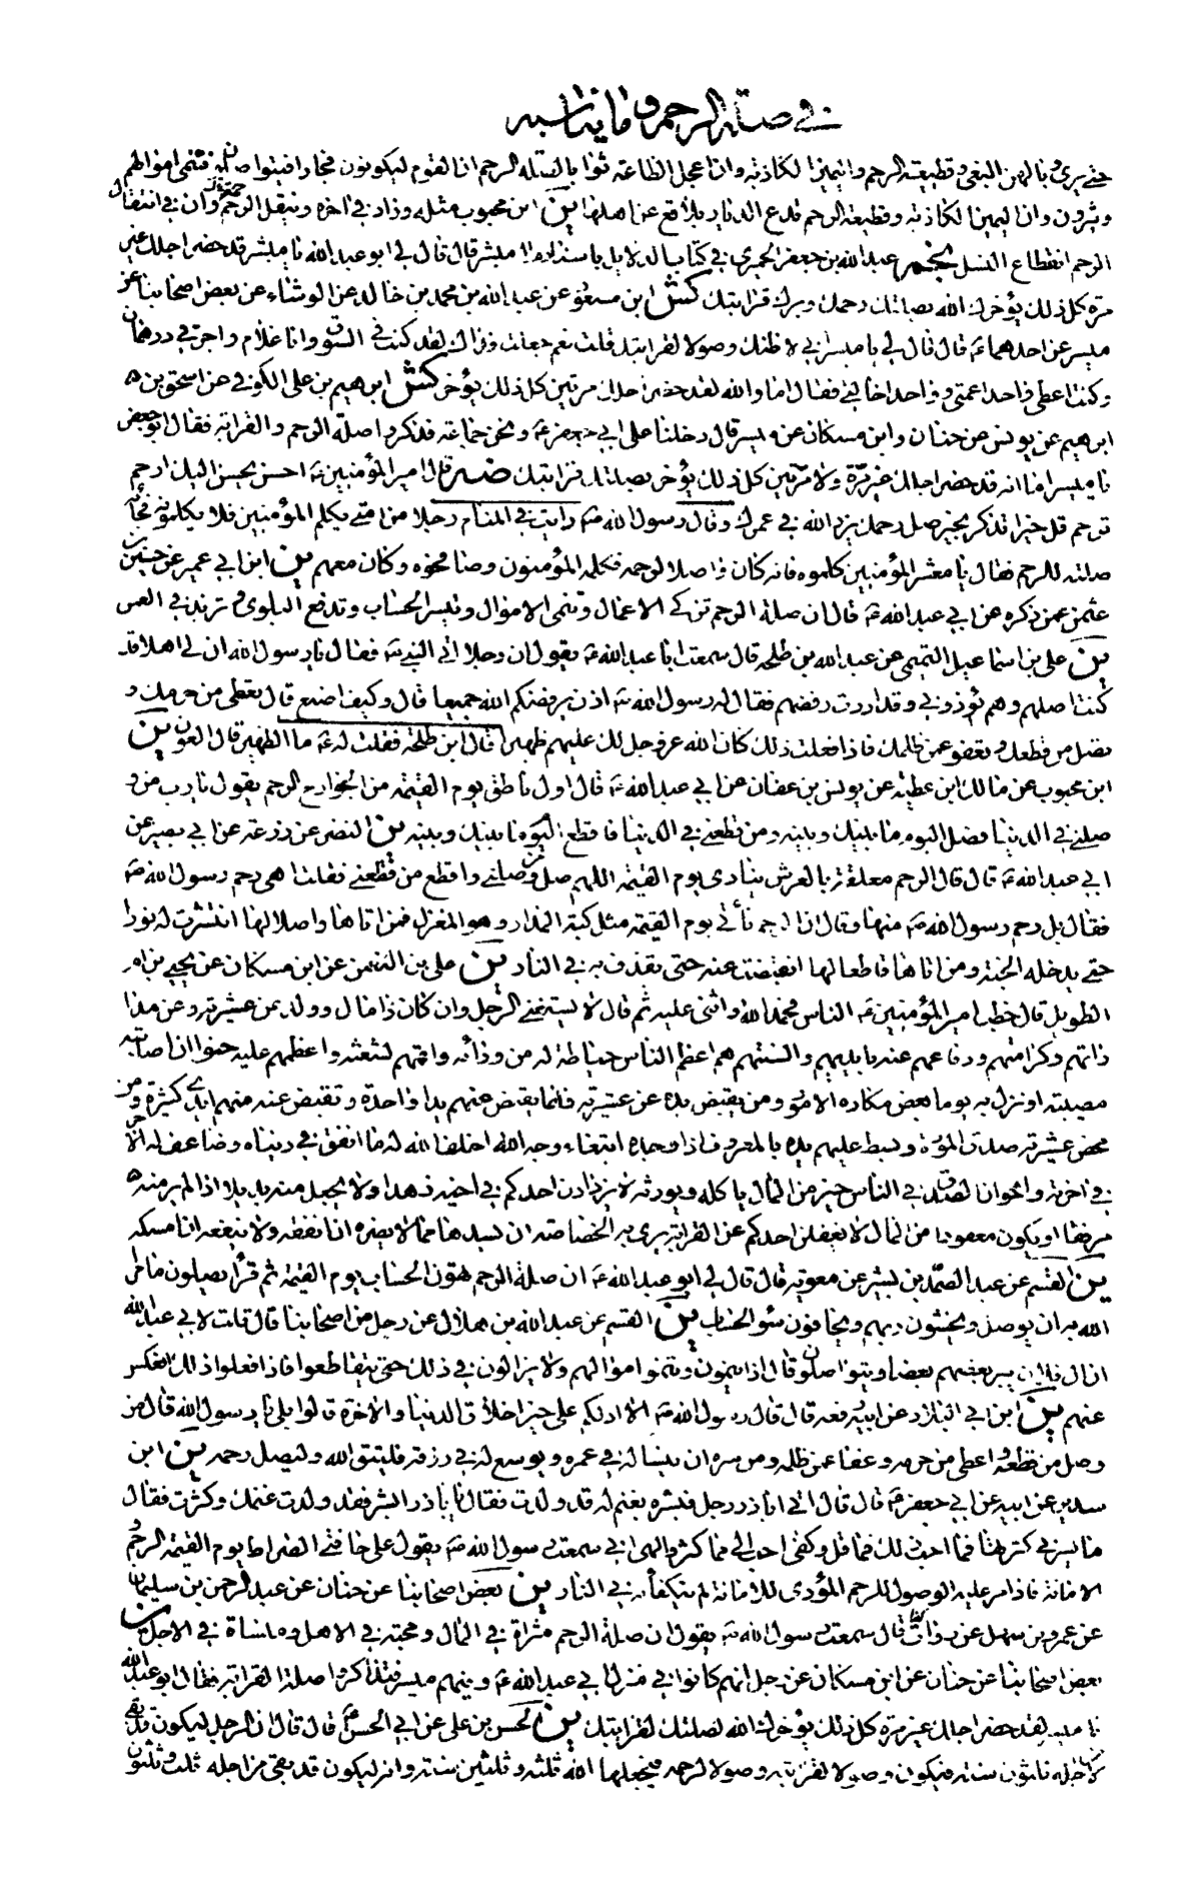 في صلة الرحم وما يناسبه
حتى يرى وبالهن البغى وقطيعة الرحم واليمين الكاذبة وان اعجل الطاعة ثوابا لصلة الرحم ان القوم ليكونون فجارا فيتواصلون فتنمى اموالهم
ويثرون وان اليمين الكاذبة وقطيعة الرحم تدع الديار بلاقع عن اهلها ين ابن محبوب مثله وزاد في اخره وتنقل الرحم وان في انتقال
الرحم انقطاع النسل عبد الله بن جعفر الحميري في كتاب الدلايل باسناده ميسر قال قال لي ابو عبد الله يا ميسر قد حضر اجلك غير
مرة كل ذلك يؤخرك الله بصلتك رحمك وبرك قرابتك كش ابن مسعود عن عبد الله بن محمد بن خالد عن الوشاء عن بعض اصحابنا عن
ميسر عن احدهما ع قال قال لي يا ميسر اني لاظنك وصولا لقرابتك قلت نعم جعلت فداك لقد كنت في السوق وانا غلام واجرتي درهمان
وكنت اعطى واحدا عمتى وواحدا خالتي فقال اما والله لقد حضر اجلك مرتين كل ذلك يؤخر كش ابرهيم بن على الكوفي عن اسحق بن
ابرهيم عن يونس عن حنان وابن مسكان عن ميسر قال دخلنا على ابي جعفر ع ونحن جماعة فذكروا صلة الرحم والقرابة فقال ابو جعفر
يا ميسر اما انه قد حضر اجلك غير مرة ولا مرتين كل ذلك يؤخر بصلتك قرابتك ضه قال امير المؤمنين ع احسن يحسن اليك ارحم
ترحم قل خيرا تذكر بخير صل رحمك يزد الله في عمرك وقال رسول الله ص رايت في المنام رجلا من امتى يكلم المؤمنين فلا يكلمونه فجائه
صلته للرحم فقال يا معشر المؤمنين كلموه فانه كان واصلا لرحمه فكلمه المؤمنون وصافحوه وكان معهم ين ابن ابي عمير عن حسين بن
عثمن عمن ذكره عن ابي عبد الله ع قال ان صلة الرحم تزكي الاعمال وتنمى الاموال وتيسر الحساب وتدفع البلوى وتزيد في العمر
ين على بن اسماعيل التميمى عن عبد الله بن طلحة قال سمعت ابا عبد الله ع يقول ان رجلا اتى النبي ص فقال يا رسول الله ان لي اهلا قد
كنت اصلهم وهم يؤذوني وقد اردت رفضهم فقال له رسول الله ص اذن يرفضكم الله جميعا قال وكيف اصنع قال تعطى من حرمك و
تصل من قطعك وتعفو عمن ظلمك فاذا فعلت ذلك كان الله عز وجل لك عليهم ظهيرا قال ابن طلحة فقلت له ع ما الظهير قال العون ين
ابن محبوب عن مالك ابن عطية عن يونس بن عفان عن ابي عبد الله ع قال اول ناطق يوم القيمة من الجوارح الرحم يقول يا رب من و
صلني في الدنيا فصل اليوم ما بينك وبينه ومن قطعني في الدنيا فاقطع اليوم ما بينك وبينه ين النضر عن زرعة عن ابي بصير عن
ابي عبد الله ع قال قال الرحم معلقة بالعرش ينادى يوم القيمة اللهم صل من وصلني واقطع من قطعني فقلت اهى رحم رسول الله ص
فقال بل رحم رسول الله ص منها وقال ان الرحم تأتي يوم القيمة مثل كبة المدار وهو المغزل فمن اتاها واصلا لها انتشرت له نورا
حتى يدخله الجنة ومن اتاها قاطعا لها انقبضت عنه حتى يقذف به في النار ين على بن النعمن عن ابن مسكان عن يحيى بن ام
الطويل قال خطب امير المؤمنين ع الناس فحمد الله واثنى عليه ثم قال لا يستغنى الرجل وان كان ذا مال وولد عن عشيرته وعن مدا
راتهم وكرامتهم ودفاعهم عنه بايديهم والسنتهم هم اعظم الناس حياطة له من ورائه والمهم لشعثه واعظمهم عليه حنوا ان اصابته
مصيبة او نزل به يوما بعض مكاره الامور ومن يقبض يده عن عشيرته فانما يقبض عنهم يدا واحدة وتقبض عنه منهم ايدى كثيرة ومن
محض عشيرته صدق المودة وبسط عليهم يده بالمعروف اذا وجده ابتغاء وجه الله اخلف الله له ما انفق في دنياه وضاعف له الاجر
في اخرته واخوان الصدق في الناس خير من المال ياكله ويورثه لا يزدادن احدكم في اخيه زهدا ولا يجعل منه بديلا اذا لم ير منه
مرفقا او يكون مقفودا من المال لا يغفلن احدكم عن القرابة يرى به الخصاصة ان يسدها مما لا يضره ان انفقه ولا ينفعه ان امسكه
ين القسم عن عبد الصمد بن بشير عن معوية قال قال لي ابو عبد الله ع ان صلة الرحم تهون الحساب يوم القيمة ثم قرأ يصلون ما امر
الله به ان يوصل ويخشون ربهم ويخافون سوء الحساب ين القسم عن عبد الله بن هلال عن رجل من اصحابنا قال قلت لابي عبد الله
ان ال فلان يبر بعضهم بعضا ويتواصلون قال اذا ينمون وتنموا اموالهم ولا يزالون في ذلك حتى يتقاطعوا فاذا فعلوا ذلك انعكس
عنهم ين ابن ابي البلاد عن ابيه رفعه قال قال رسول الله ص الا ادلكم على خير اخلاق الدنيا والاخرة قالوا بلى يا رسول الله قال من
وصل من قطعه واعطى من حرمه وعفا عمن ظلمه ومن سره ان ينسا له في عمره ويوسع له في رزقه فليتق الله وليصل رحمه ين ابن
سدير عن ابيه عن ابي جعفر ع قال قال اتى ابا ذر رجل فبشره بغنم له قد ولدت فقال يا با ذر ابشر فقد ولدت غنمك وكثرت فقال
ما يسرني كثرتها فما احب ذلك فما قل وكفى احب الى مما كثر والهى اني سمعت رسول الله ص يقول على حافتى الصراط يوم القيمة الرحم و
الامانة فاذا مر عليه الوصول للرحم المؤدى للامانة لم يتكفأ به في النار ين بعض اصحابنا عن حنان عن عبد الرحمن بن سليمان
عن عمرو بن سهل عن رواته قال سمعت رسول الله ص يقول ان صلة الرحم مثراة في المال ومحبة في الاهل ومنساة في الاجل ين
بعض اصحابنا عن حنان عن ابن مسكان عن رجل انهم كانوا في منزل ابي عبد الله ع وفيهم ميسر فتذاكروا صلة القرابة فقال ابو عبد الله
يا ميسر لقد حضر اجلك غير مرة كل ذلك يؤخرك الله لصلتك لقرابتك ين الحسن بن على عن ابي الحسن ع قال قال ان الرجل ليكون قد بقى
من اجله ثلثون سنة فيكون وصولا لقرابته وصولا لرحمه فيجعلها الله ثلثة وثلثين سنة وانه ليكون قد بقى من اجله ثلث وثلثون